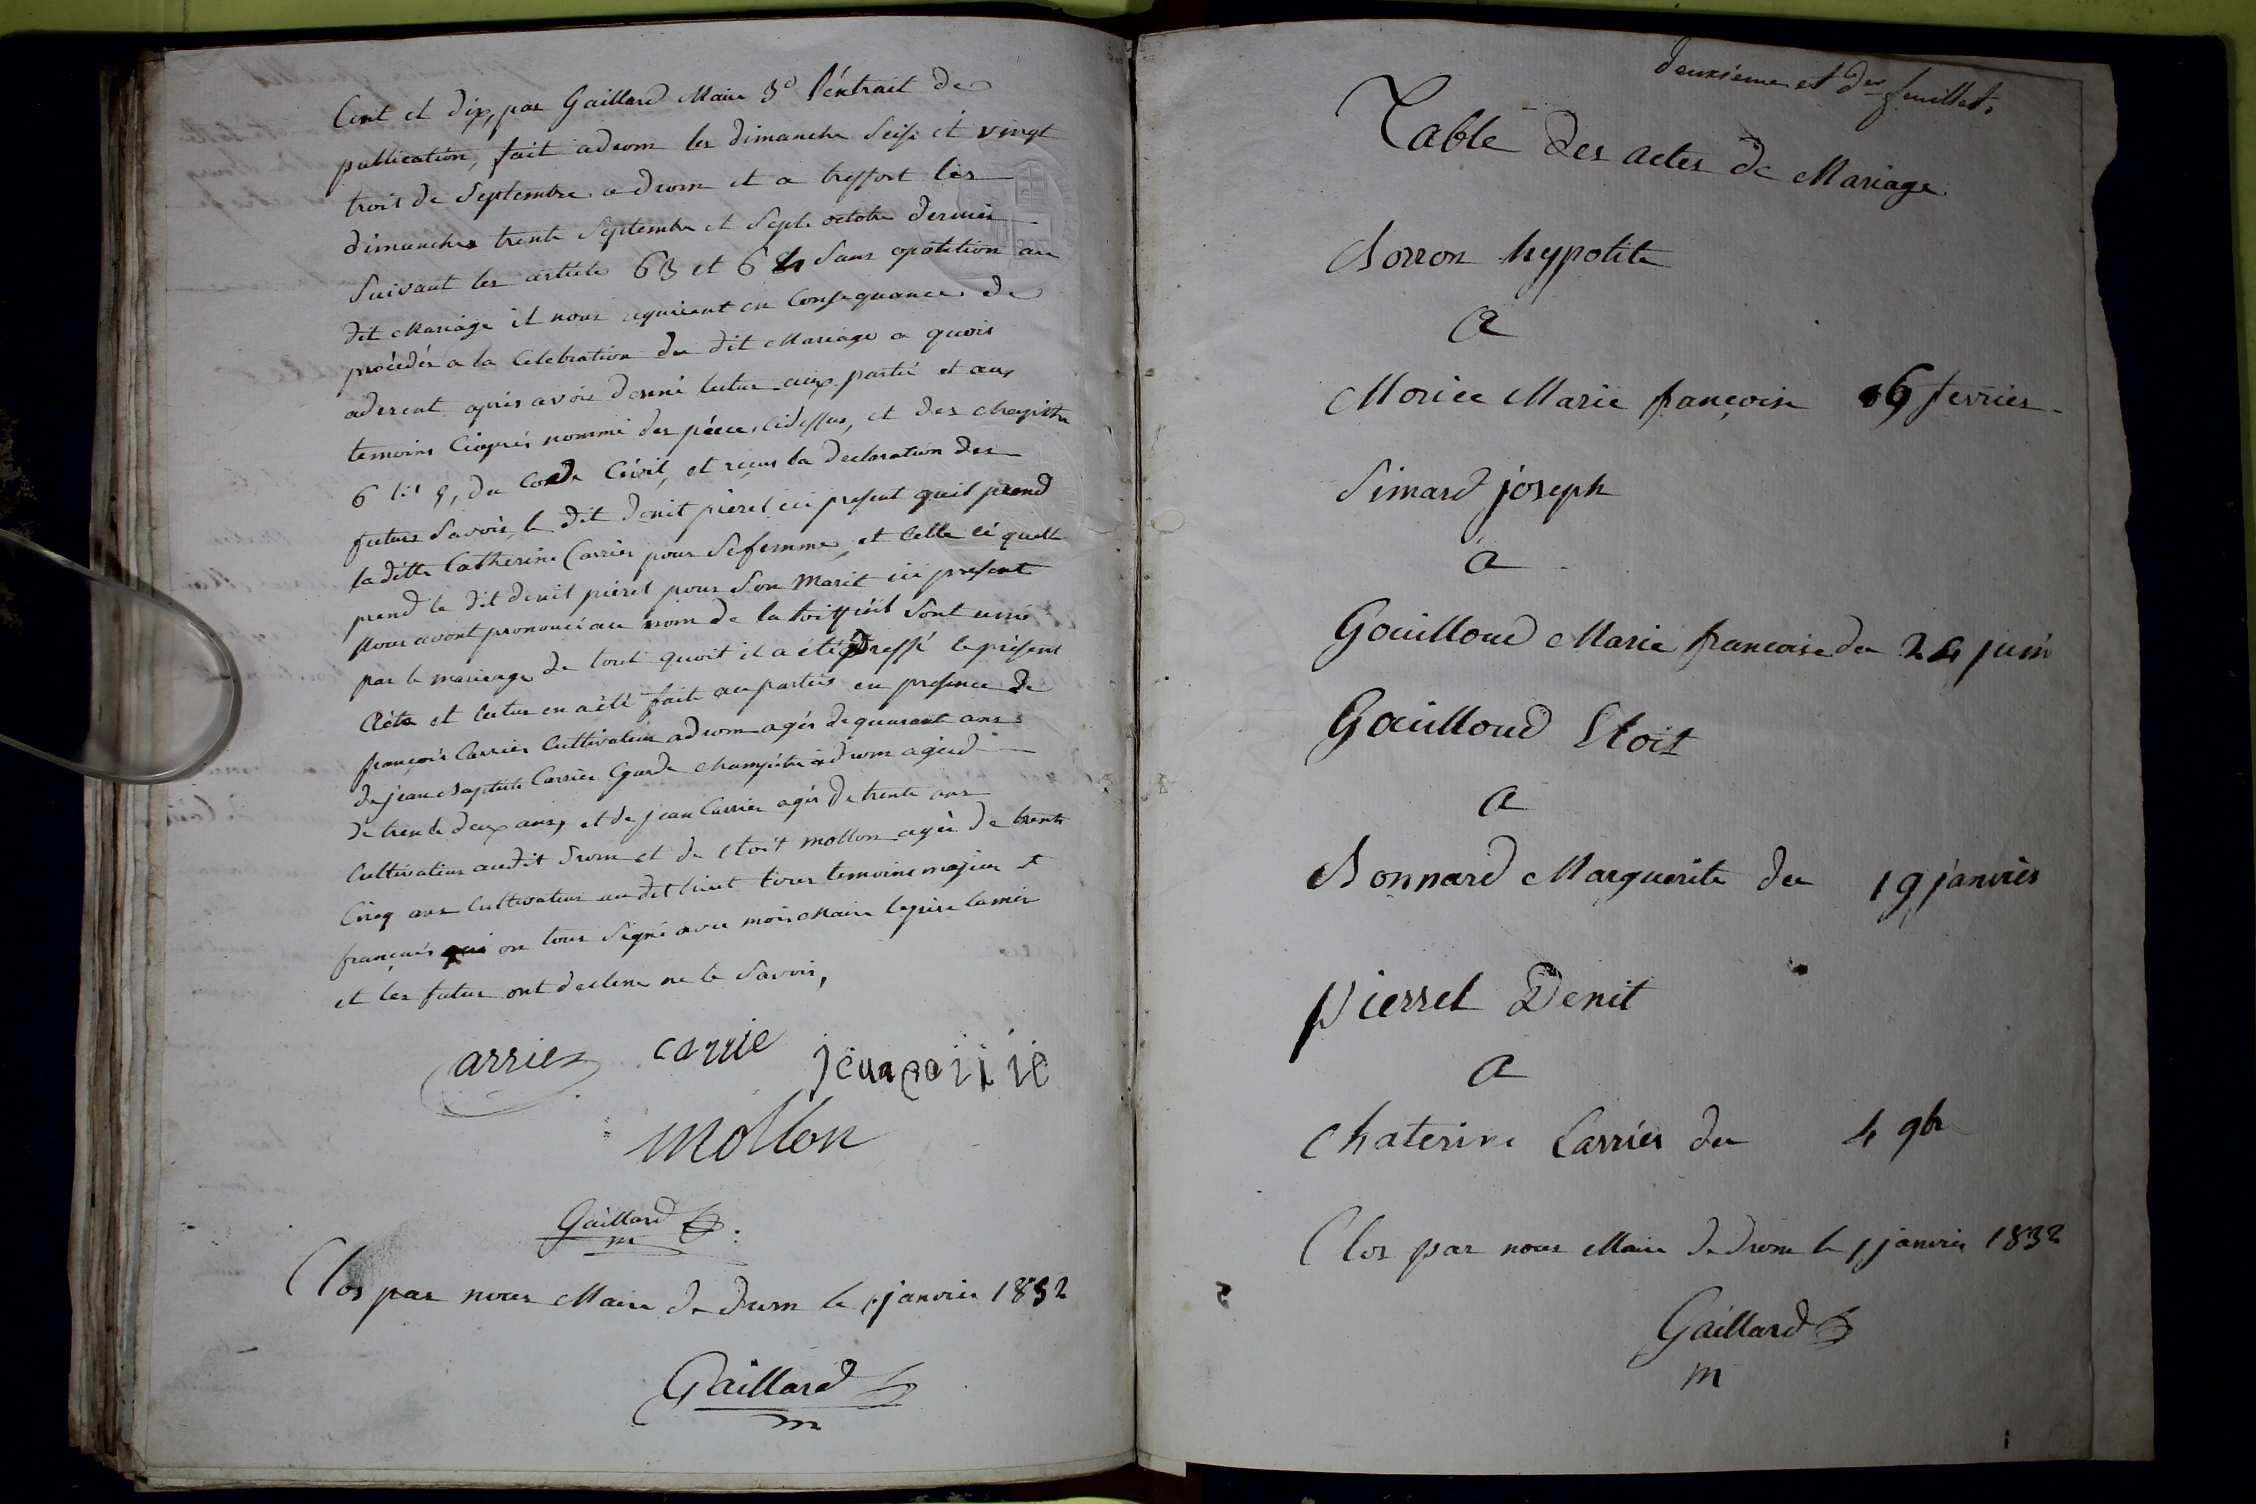 Cent et dix, par Gaillard Maire 3° l'éxtrait de
publication, fait a drom les dimanche Seise et vingt
troit de Septembre a drom et a treffort les
dimanches trente Septembre et Sept octobre dernier
Suivant les article 63 et 64 Sans opotition au
dit Mariage it nous requierent en Consequance de
procédér a la Celebration du dit Mariage a quois
aderent après avoir donné lectue aux partié et aux
temoins Ciaprés nommé des piéces cidessus, et des chapitre
6 tit 5, du Code Civil, et reçus la declaration des
futurs Savoir, le dit denit piérel ici present quil prend
la ditte Catherine Carrier pour Sefemme, et Celle ci quelle
prend le dit denit piérel pour Son Marit ici present
Nous avont prononcé au nom de la loi quil Sont unie
par le mariage de tout quoit il a été Dressé le présent
Acte et lectue en a été fait au parties en presence de
françois Carrier Cultivateur a drom agés de quarant ans
de jean Baptiste Carrier Garde champétre a drom agé d
de trente deux ans, et de jean Carrier agés de trente ans
Cultivateur audit drom et de Eloit mollon agés de trente
Cinq ans Cultivateur au dit lieut tous temoins majeur et
français qui on tous Signé avec mois Maire le pére la mér
et les futur ont declere ne le Savoir,
arrier carrie
mollon
Gaillard
m
Clos par nous Maire de drom le 1 janvier 1832
Gaillard
m
deuxième et der feuillet.
Table des actes de Mariage
Borron hypolite
a
Morice Marie françoise 16 fevrier
Simard joseph
a
Gouilloud Marie francoise du 24 juin
Gouilloud Eloit
a
Bonnard Marguerite du 19 janvier
Pierrel Denit
a
Chaterine Carrier du 4 9bre
Clos par nous Maire de drom le 1 janvier 1832
Gaillard
m